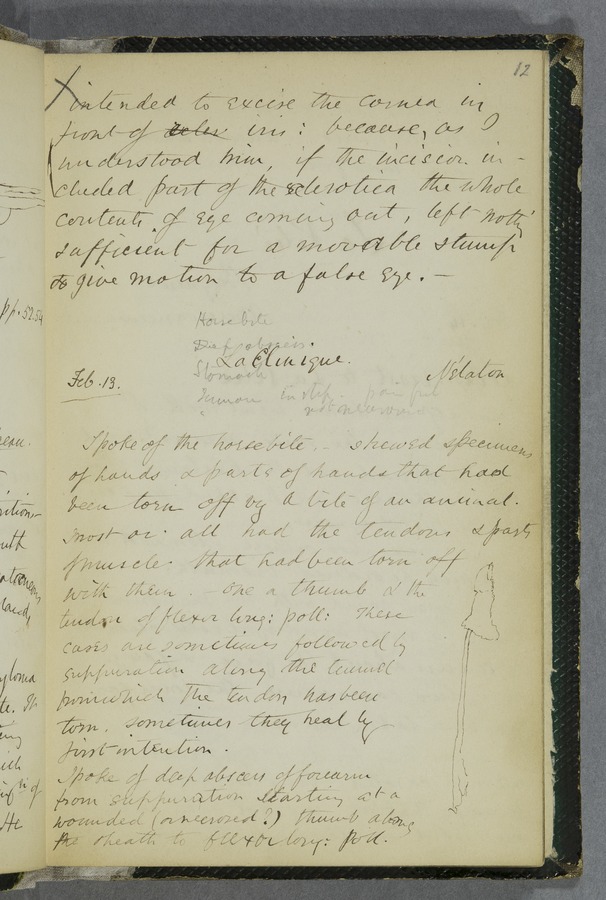 12
intended to excise the cornea in
front of iris: because, as I
understood him, if the incision in-
cluded part of the sclerotica the whole
contents of eye coming out, left noth'g
sufficient for a movable stump
to give motion to a false eye. —
Horsebite
Deep abscess.
Stomach
La Clinique.
Feb. 13. Nélaton
Tumour instep. pain
not
Spoke of the horsebite. — shewed specimens
of hands & parts of hands that had
been torn off by a bite of an animal.
most or all had the tendons & parts
muscles that had been torn off
with them. — One a thumb & the
tendon of flexor long: poll: These
cases are sometimes followed by
suppuration along the tunnel
from which the tendon has been
torn. sometimes they heal by
first intention.
Spoke of deep abscess of forearm
from suppuration starting at a
wounded (or necrosed?) thumb along
the sheath to flexor long: poll.
pp. 52.54